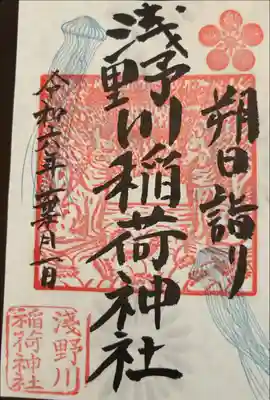 朔日詣り
浅野川稲荷神社
令和六年 月一日
浅野川
稲荷神社